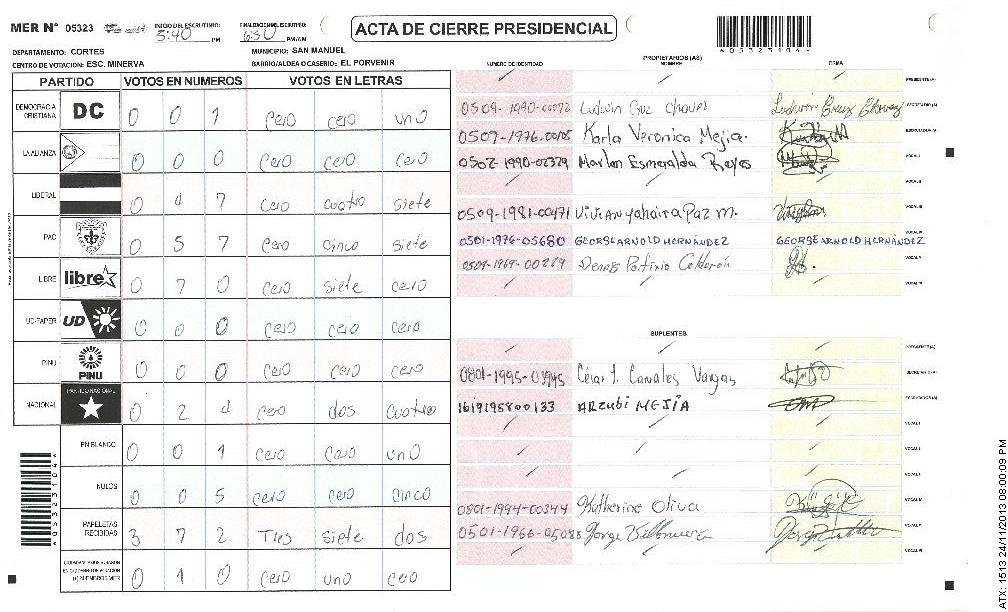 MER N° 05323 INICIO DEL ESCRUTINIO: 5:40 PM FINALIZACION ESCRUTINIO: 6:50 PM/AM
ACTA DE CIERRE PRESIDENCIAL
4053231049
DEPARTAMENTO: CORTES MUNICIPIO: SAN MANUEL
CENTRO DE VOTACION: ESC. MINERVA BARRIO/ALDEA O CASERIO: EL PORVENIR
PARTIDO VOTOS EN NUMEROS VOTOS EN LETRAS
DEMOCRACIA CRISTIANA DC 0 0 1 cero cero uno
LA ALIANZA 0 0 0 cero cero cero
LIBERAL 0 4 7 cero cuatro siete
PAC 0 5 7 cero cinco siete
LIBRE libre 0 7 0 cero siete cero
UD-FAPER UD 0 0 0 cero cero cero
PINU PINU 0 0 0 cero cero cero
NACIONAL PARTIDO NACIONAL 0 2 4 cero dos cuatro
EN BLANCO 0 0 1 cero cero uno
NULOS 0 0 5 cero cero cinco
PAPELETAS RECIBIDAS 3 7 2 Tres siete dos
0 1 0 cero uno cero
PROPIETARIOS (AS)
NUMERO DE IDENTIDAD NOMBRE FIRMA
PRESIDENTE (A)
0509-1990-00072 Ludwin Cruz Chavez Ludwin Cruz Chavez SECRETARIO (A)
0509-1976-00105 Karla Veronica Mejia. ESCRUTADOR (A)
0502-1990-02329 Marlen Esmeralda Reyes VOCAL I
VOCAL II
0509-1981-00471 Vivian yahaira Paz m. VOCAL III
0501-1976-05680 GEORGE ARNOLD HERNÁNDEZ GEORGE ARNOLD HERNÁNDEZ VOCAL IV
0509-1969-00219 Denis Porfirio Calderón VOCAL V
VOCAL VI
SUPLENTES
PRESIDENTE (A)
0801-1995-03945 César J. Canales Vargas SECRETARIO (A)
1619195800133 ARZUBI MEJIA ESCRUTADOR (A)
VOCAL I
VOCAL II
VOCAL III
0801-1994-00344 Katherine Oliva VOCAL IV
0501-1966-05088 Jorge Villanueva VOCAL V
VOCAL VI
4053231049
ATX: 1513 24/11/2013 08:00:09 PM